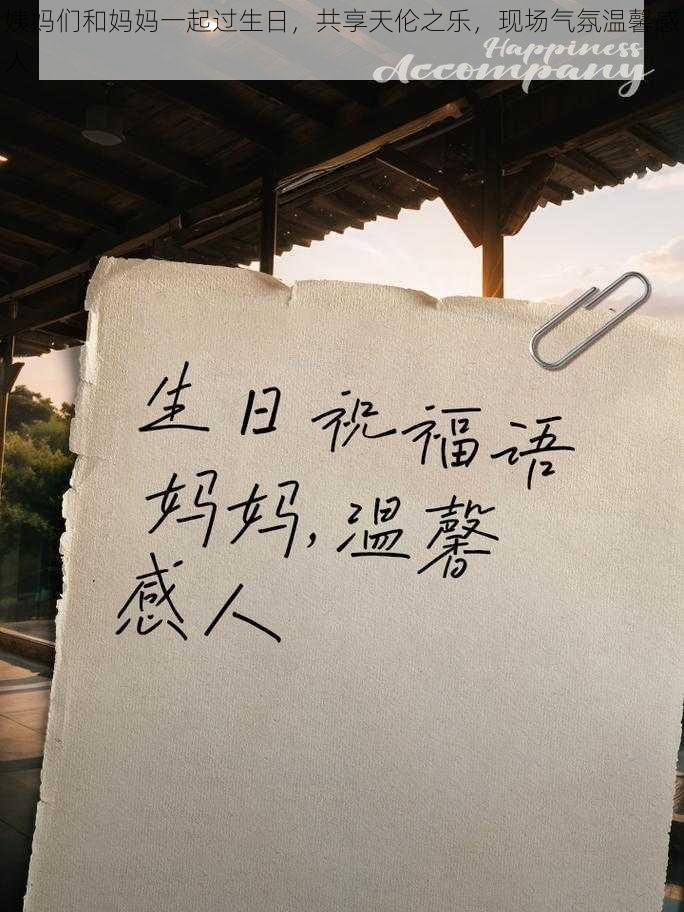 姨妈们和妈妈一起过生日，共享天伦之乐，现场气氛温馨感
人
Happiness
Accompany
生日祝福语
妈妈，温馨
感人